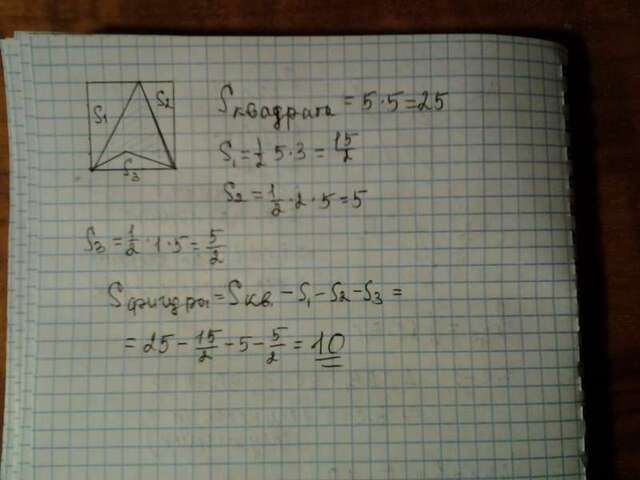 S₁
S₂
S₃
Sквадрата = 5·5=25
S₁ = 1/2 5·3 = 15/2
S₂ = 1/2·2·5=5
S₃ = 1/2·1·5 = 5/2
Sфигуры = Sкв. - S₁ - S₂ - S₃ =
= 25 - 15/2 - 5 - 5/2 = 10